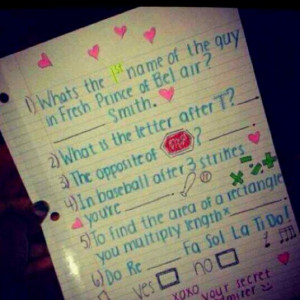 1) Whats the 1st name of the guy
in Fresh Prince of Bel air?
______ Smith.
2) What is the letter after T? ____
3) The opposite of STOP? ____
4) In baseball after 3 strikes
you're ____
5) To find the area of a rectangle
you multiply length x ____
6) Do Re ____ Fa Sol La Ti Do!
yes no
xoxo your secret
admirer